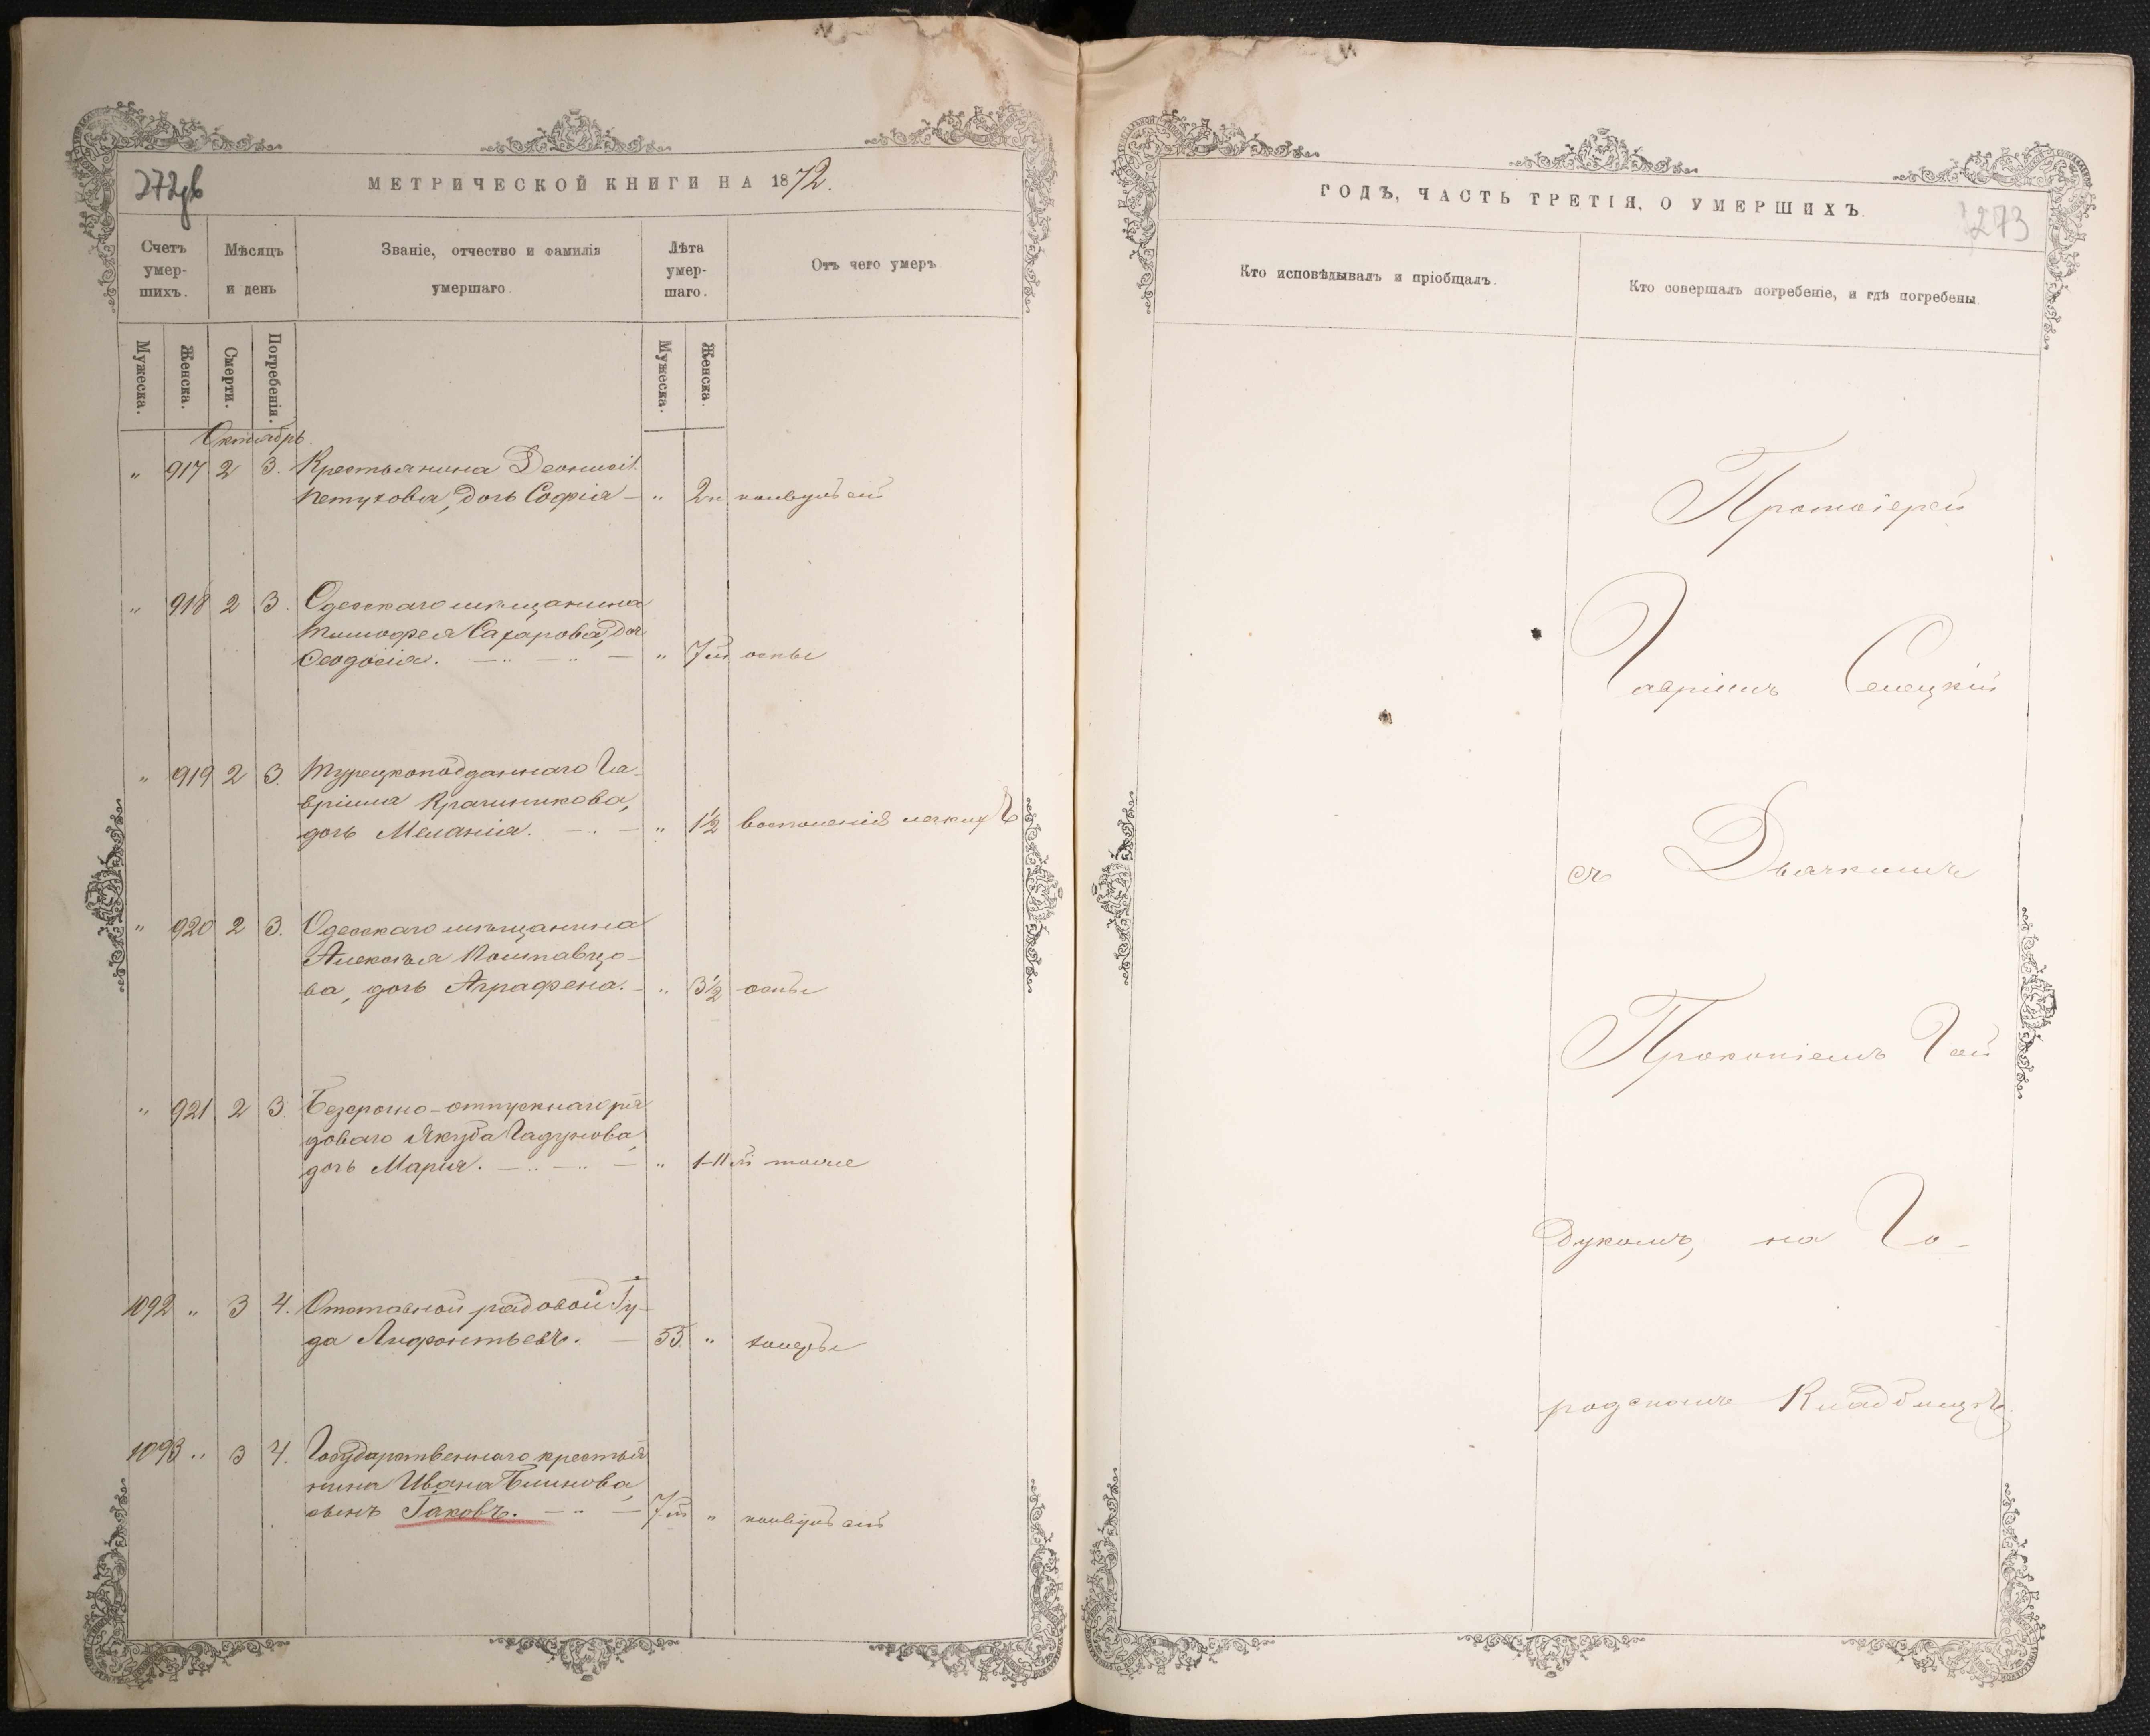 272 об
МЕТРИЧЕСКОЙ КНИГИ НА 1872.
Счетъ умер-шихъ.
Мѣсяцъ и день
Званіе, отчество и фамилія умершаго.
Лѣта умер-шаго.
Отъ чего умеръ
Мужеска.
Женска.
Смерти.
Погребенія.
Мужеска.
Женска.
Октябрь.
" 917 2 3. Крестьянина Деонисія
Петухова, дочь Софія — " 2н конвульсій
" 918 2 3. Одесскаго мѣщанина
Тимофея Сахарова, дочь
Ѳеодосія. " 7м оспы
" 919 2 3. Турецкоподданнаго Га-
вріила Крачиникова,
дочь Меланія. " 1½ воспаленія легкихъ
" 920 2 3. Одесскаго мѣщанина
Алексѣя Полтавцо-
ва, дочь Аграфена. " 3½ оспы
" 921 2 3. Безсрочно-отпускнаго ря
доваго Якуба Гадунова,
дочь Марія. " 1-11м тоже
1092 " 3 4. Отставной рядовой Іу-
да Лифонтьевъ. — 55. " холеры
1093 " 3 4. Государственнаго крестья
нина Ивана Блинова,
сынъ Іаковъ. 7м " конвульсій
ГОДЪ, ЧАСТЬ ТРЕТІЯ, О УМЕРШИХЪ.
273
Кто исповѣдывалъ и пріобщалъ.
Кто совершалъ погребеніе, и гдѣ погребены.
Протоіерей
Гавріилъ Селецкій
съ Дьячкомъ
Прокопіемъ Гай
дукомъ, на Го-
родскомъ Кладбищѣ.